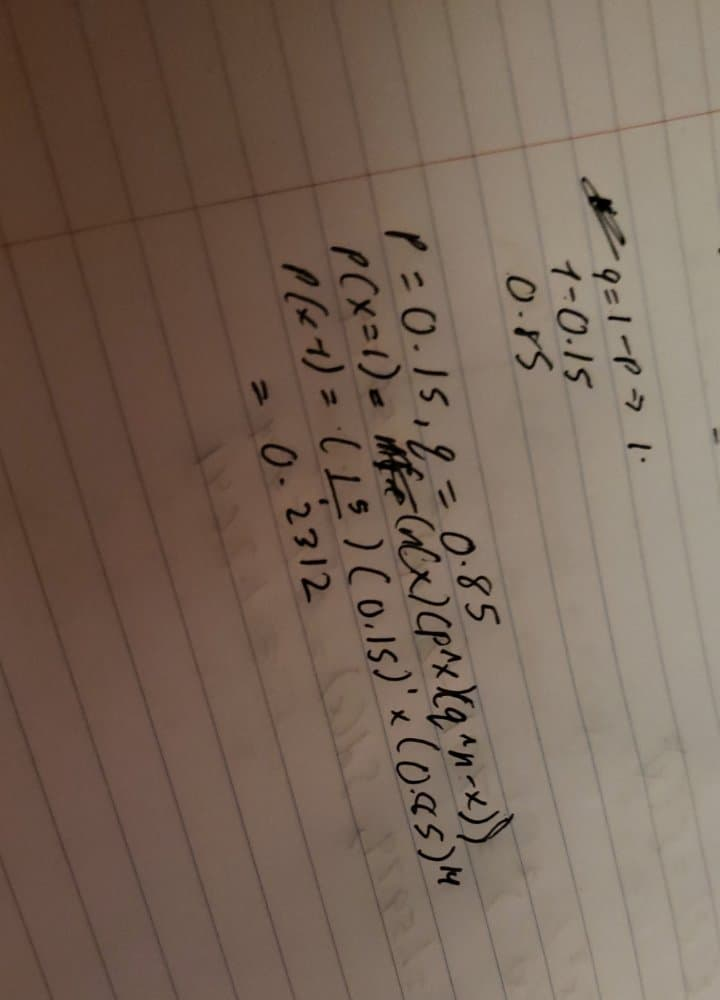 q=1-p => 1.
1-0.15
0.85
P = 0.15, q = 0.85
P(x=1) = (nCx)(p^x)(q^n-x))
P(x-1) = (15/1)(0.15)' x (0.85)^14
= 0.2312